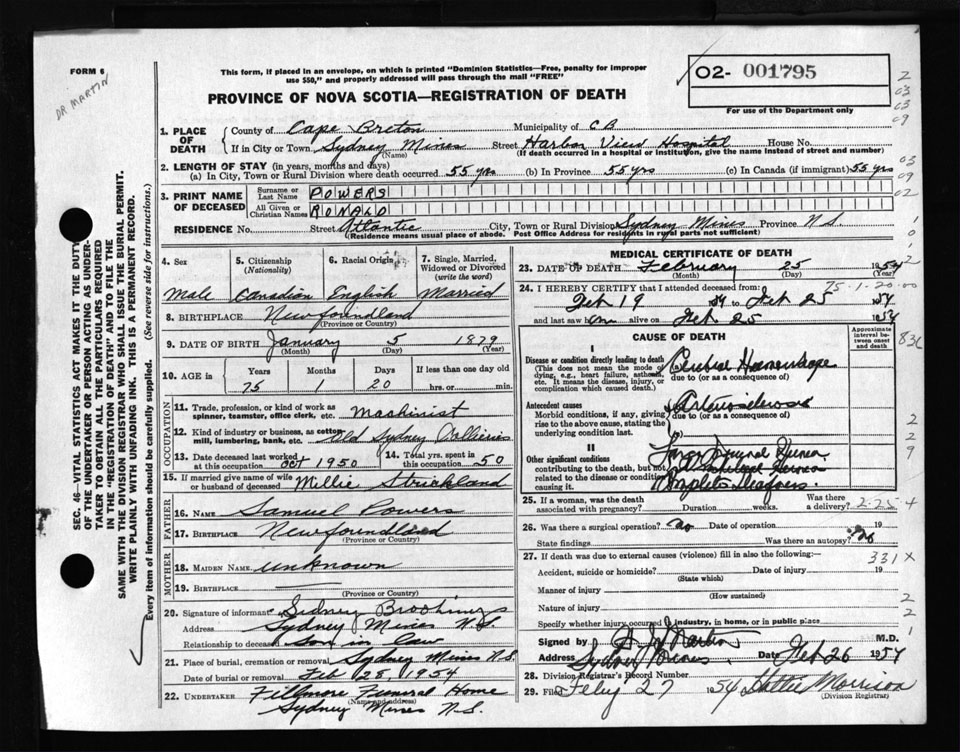 FORM 6
DR MARTIN
This form, if placed in an envelope, on which is printed "Dominion Statistics—Free, penalty for improper
use $50," and properly addressed will pass through the mail "FREE"
O2- 001795
PROVINCE OF NOVA SCOTIA—REGISTRATION OF DEATH
For use of the Department only
SEC. 46—VITAL STATISTICS ACT MAKES IT THE DUTY
OF THE UNDERTAKER OR PERSON ACTING AS UNDER-
TAKER TO OBTAIN ALL THE PARTICULARS REQUIRED
IN THE "REGISTRATION OF DEATH" AND TO FILE THE
SAME WITH THE DIVISION REGISTRAR WHO SHALL ISSUE THE BURIAL PERMIT.
WRITE PLAINLY WITH UNFADING INK. THIS IS A PERMANENT RECORD.
Every item of information should be carefully supplied. (See reverse side for instructions.)
1. PLACE OF DEATH
County of Cape Breton Municipality of C B
If in City or Town Sydney Mines Street Harbor View Hospital House No.
(Name) (If death occurred in a hospital or institution, give the name instead of street and number)
2. LENGTH OF STAY (in years, months and days)
(a) In City, Town or Rural Division where death occurred 55 yrs (b) In Province 55 yrs (c) In Canada (if immigrant) 55 yrs
3. PRINT NAME OF DECEASED
Surname or Last Name POWERS
All Given or Christian Names RONALD
RESIDENCE No. Street Atlantic City, Town or Rural Division Sydney Mines Province N.S.
(Residence means usual place of abode. Post Office Address for residents in rural parts not sufficient)
4. Sex 5. Citizenship (Nationality) 6. Racial Origin 7. Single, Married, Widowed or Divorced (write the word)
Male Canadian English Married
8. BIRTHPLACE Newfoundland
(Province or Country)
9. DATE OF BIRTH January 5 1879
(Month) (Day) (Year)
10. AGE in Years Months Days If less than one day
75 1 20 hrs. or min.
OCCUPATION
11. Trade, profession, or kind of work as
spinner, teamster, office clerk, etc. Machinist
12. Kind of industry or business, as cotton
mill, lumbering, bank, etc. Old Sydney Collieries
13. Date deceased last worked
at this occupation Oct 1950
14. Total yrs. spent in
this occupation 50
15. If married give name of wife
or husband of deceased Millie Strickland
FATHER
16. Name Samuel Powers
17. Birthplace Newfoundland
(Province or Country)
MOTHER
18. Maiden Name unknown
19. Birthplace
(Province or Country)
20. Signature of informant Sidney Brookings
Address Sydney Mines N.S.
Relationship to deceased Son in law
21. Place of burial, cremation or removal Sydney Mines N.S.
Date of burial or removal Feb 28, 1954
22. Undertaker Fillmore Funeral Home
(Name and address)
Sydney Mines N.S.
MEDICAL CERTIFICATE OF DEATH
23. DATE OF DEATH February 25 1954
(Month) (Day) (Year)
24. I HEREBY CERTIFY that I attended deceased from:
75-1-20-00
Feb 19 54 to Feb 25 1954
and last saw him alive on Feb 25 1954
CAUSE OF DEATH
Approximate interval between onset and death
I
Disease or condition directly leading to death
(This does not mean the mode of
dying, e.g., heart failure, asthenia,
etc. It means the disease, injury, or
complication which caused death.)
Cerebral Haemorrhage
due to (or as a consequence of)
Antecedent causes
Morbid conditions, if any, giving
rise to the above cause, stating the
underlying condition last.
Arteriosclerosis
due to (or as a consequence of)
II
Other significant conditions
contributing to the death, but not
related to the disease or condition
causing it.
Large Inguinal Hernia
Umbilical Hernia
Complete Deafness
25. If a woman, was the death
associated with pregnancy? Duration weeks. Was there a delivery? 2-25+
26. Was there a surgical operation? no Date of operation 19
State findings Was there an autopsy? no
27. If death was due to external causes (violence) fill in also the following:— 331 x
Accident, suicide or homicide? Date of injury 19
(State which)
Manner of injury
(How sustained)
Nature of injury
Specify whether injury occurred in industry, in home, or in public place
Signed by M.D.
Address Sydney Mines Date Feb 26 1954
28. Division Registrar's Record Number
29. Filed Feby 27 1954 Hattie Morrison
(Division Registrar)
2
03
03
09
03
09
02
1
0
2
836
2
2
9
2
2
1